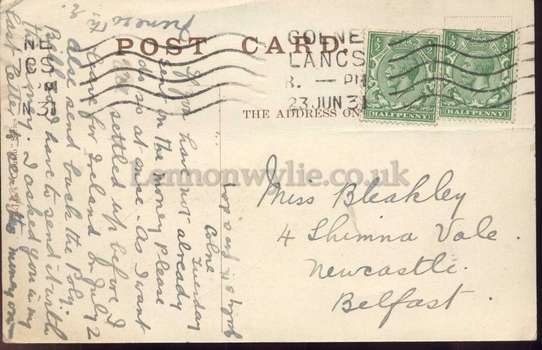 POST CARD.
COLNE
LANCS
8. — PM
23 JUN 31
THE ADDRESS ON
HALFPENNY HALFPENNY
NE
CS
PM
Lennonwylie.co.uk
Miss Bleakley
4 Shimna Vale
Newcastle
Belfast
Colne
Tuesday
If you have not already
sent on the money please
do so at once. As I want
settled up before I
leave for Ireland on July 2
also send back the Poly.
I have to send it with
I asked you in my
last letter to send the money on